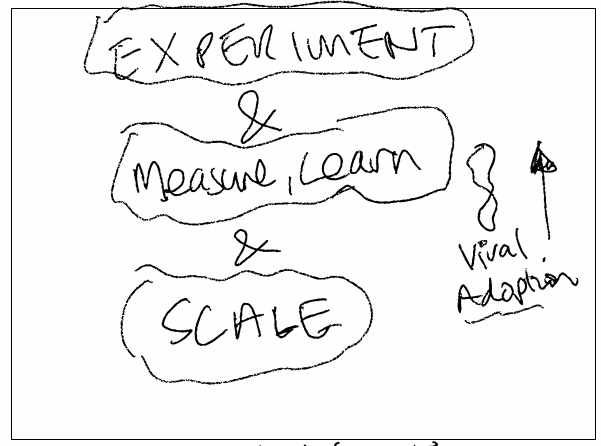 EXPERIMENT
&
Measure, Learn
&
SCALE
Viral
Adoption